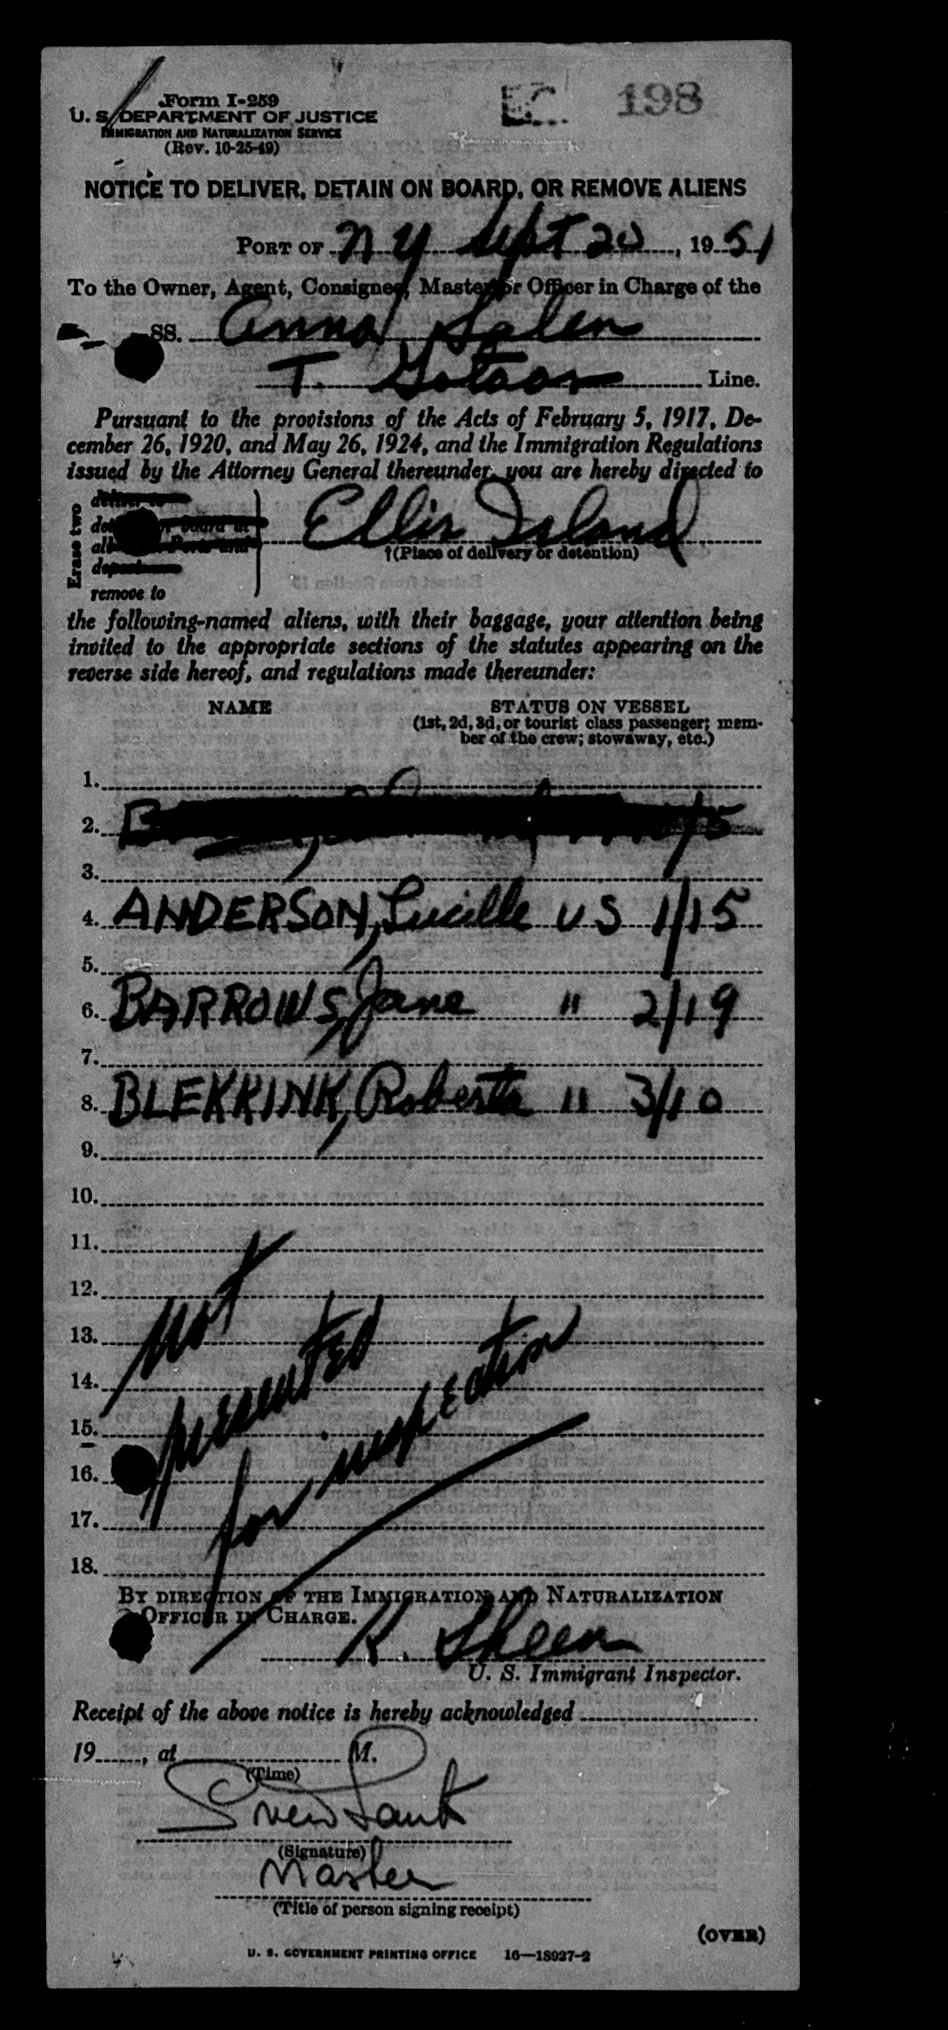 Form I-259
U. S. DEPARTMENT OF JUSTICE
IMMIGRATION AND NATURALIZATION SERVICE
(Rev. 10-25-49)
198
NOTICE TO DELIVER, DETAIN ON BOARD, OR REMOVE ALIENS
PORT OF NY Sept 20, 1951
To the Owner, Agent, Consignee, Master or Officer in Charge of the
SS. Anna Salen
T. Line.
Pursuant to the provisions of the Acts of February 5, 1917, De-
cember 26, 1920, and May 26, 1924, and the Immigration Regulations
issued by the Attorney General thereunder, you are hereby directed to
Erase two
remove to
Ellis Island
†(Place of delivery or detention)
the following-named aliens, with their baggage, your attention being
invited to the appropriate sections of the statutes appearing on the
reverse side hereof, and regulations made thereunder:
NAME STATUS ON VESSEL
(1st, 2d, 3d, or tourist class passenger; mem-
ber of the crew; stowaway, etc.)
1.
2.
3.
4. ANDERSON, Lucille US 1/15
5.
6. BARROWS, Jane " 2/19
7.
8. BLEKKINK, Roberta " 3/10
9.
10.
11.
12.
13.
14.
15.
16.
17.
18.
Not
presented
for inspection
BY DIRECTION OF THE IMMIGRATION AND NATURALIZATION
OFFICER IN CHARGE.
K. Sheen
U. S. Immigrant Inspector.
Receipt of the above notice is hereby acknowledged
19, at M.
(Time)
(Signature)
Master
(Title of person signing receipt)
(OVER)
U. S. GOVERNMENT PRINTING OFFICE 16—18927-2